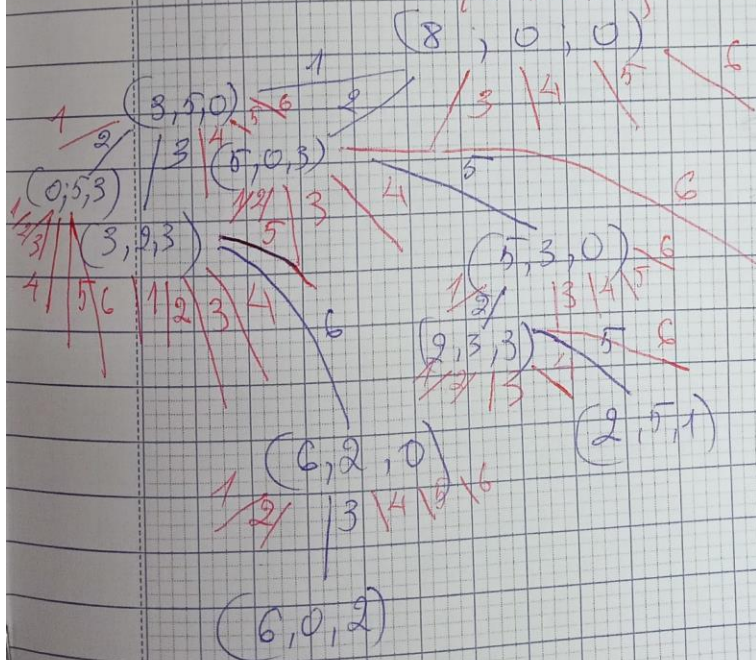 (8 ; 0 ; 0)
1 2 3 4 5 6
(3,5,0)
1 2 3 4 5 6
(5,0,3)
1 2 3 4 5 6
(0;5,3)
1 2 3 4 5 6
(3,2,3)
1 2 3 4 5 6
(5,3,0)
1 2 3 4 5 6
(2,3,3)
1 2 3 4 5 6
(2,5,1)
(6,2,0)
1 2 3 4 5 6
(6,0,2)